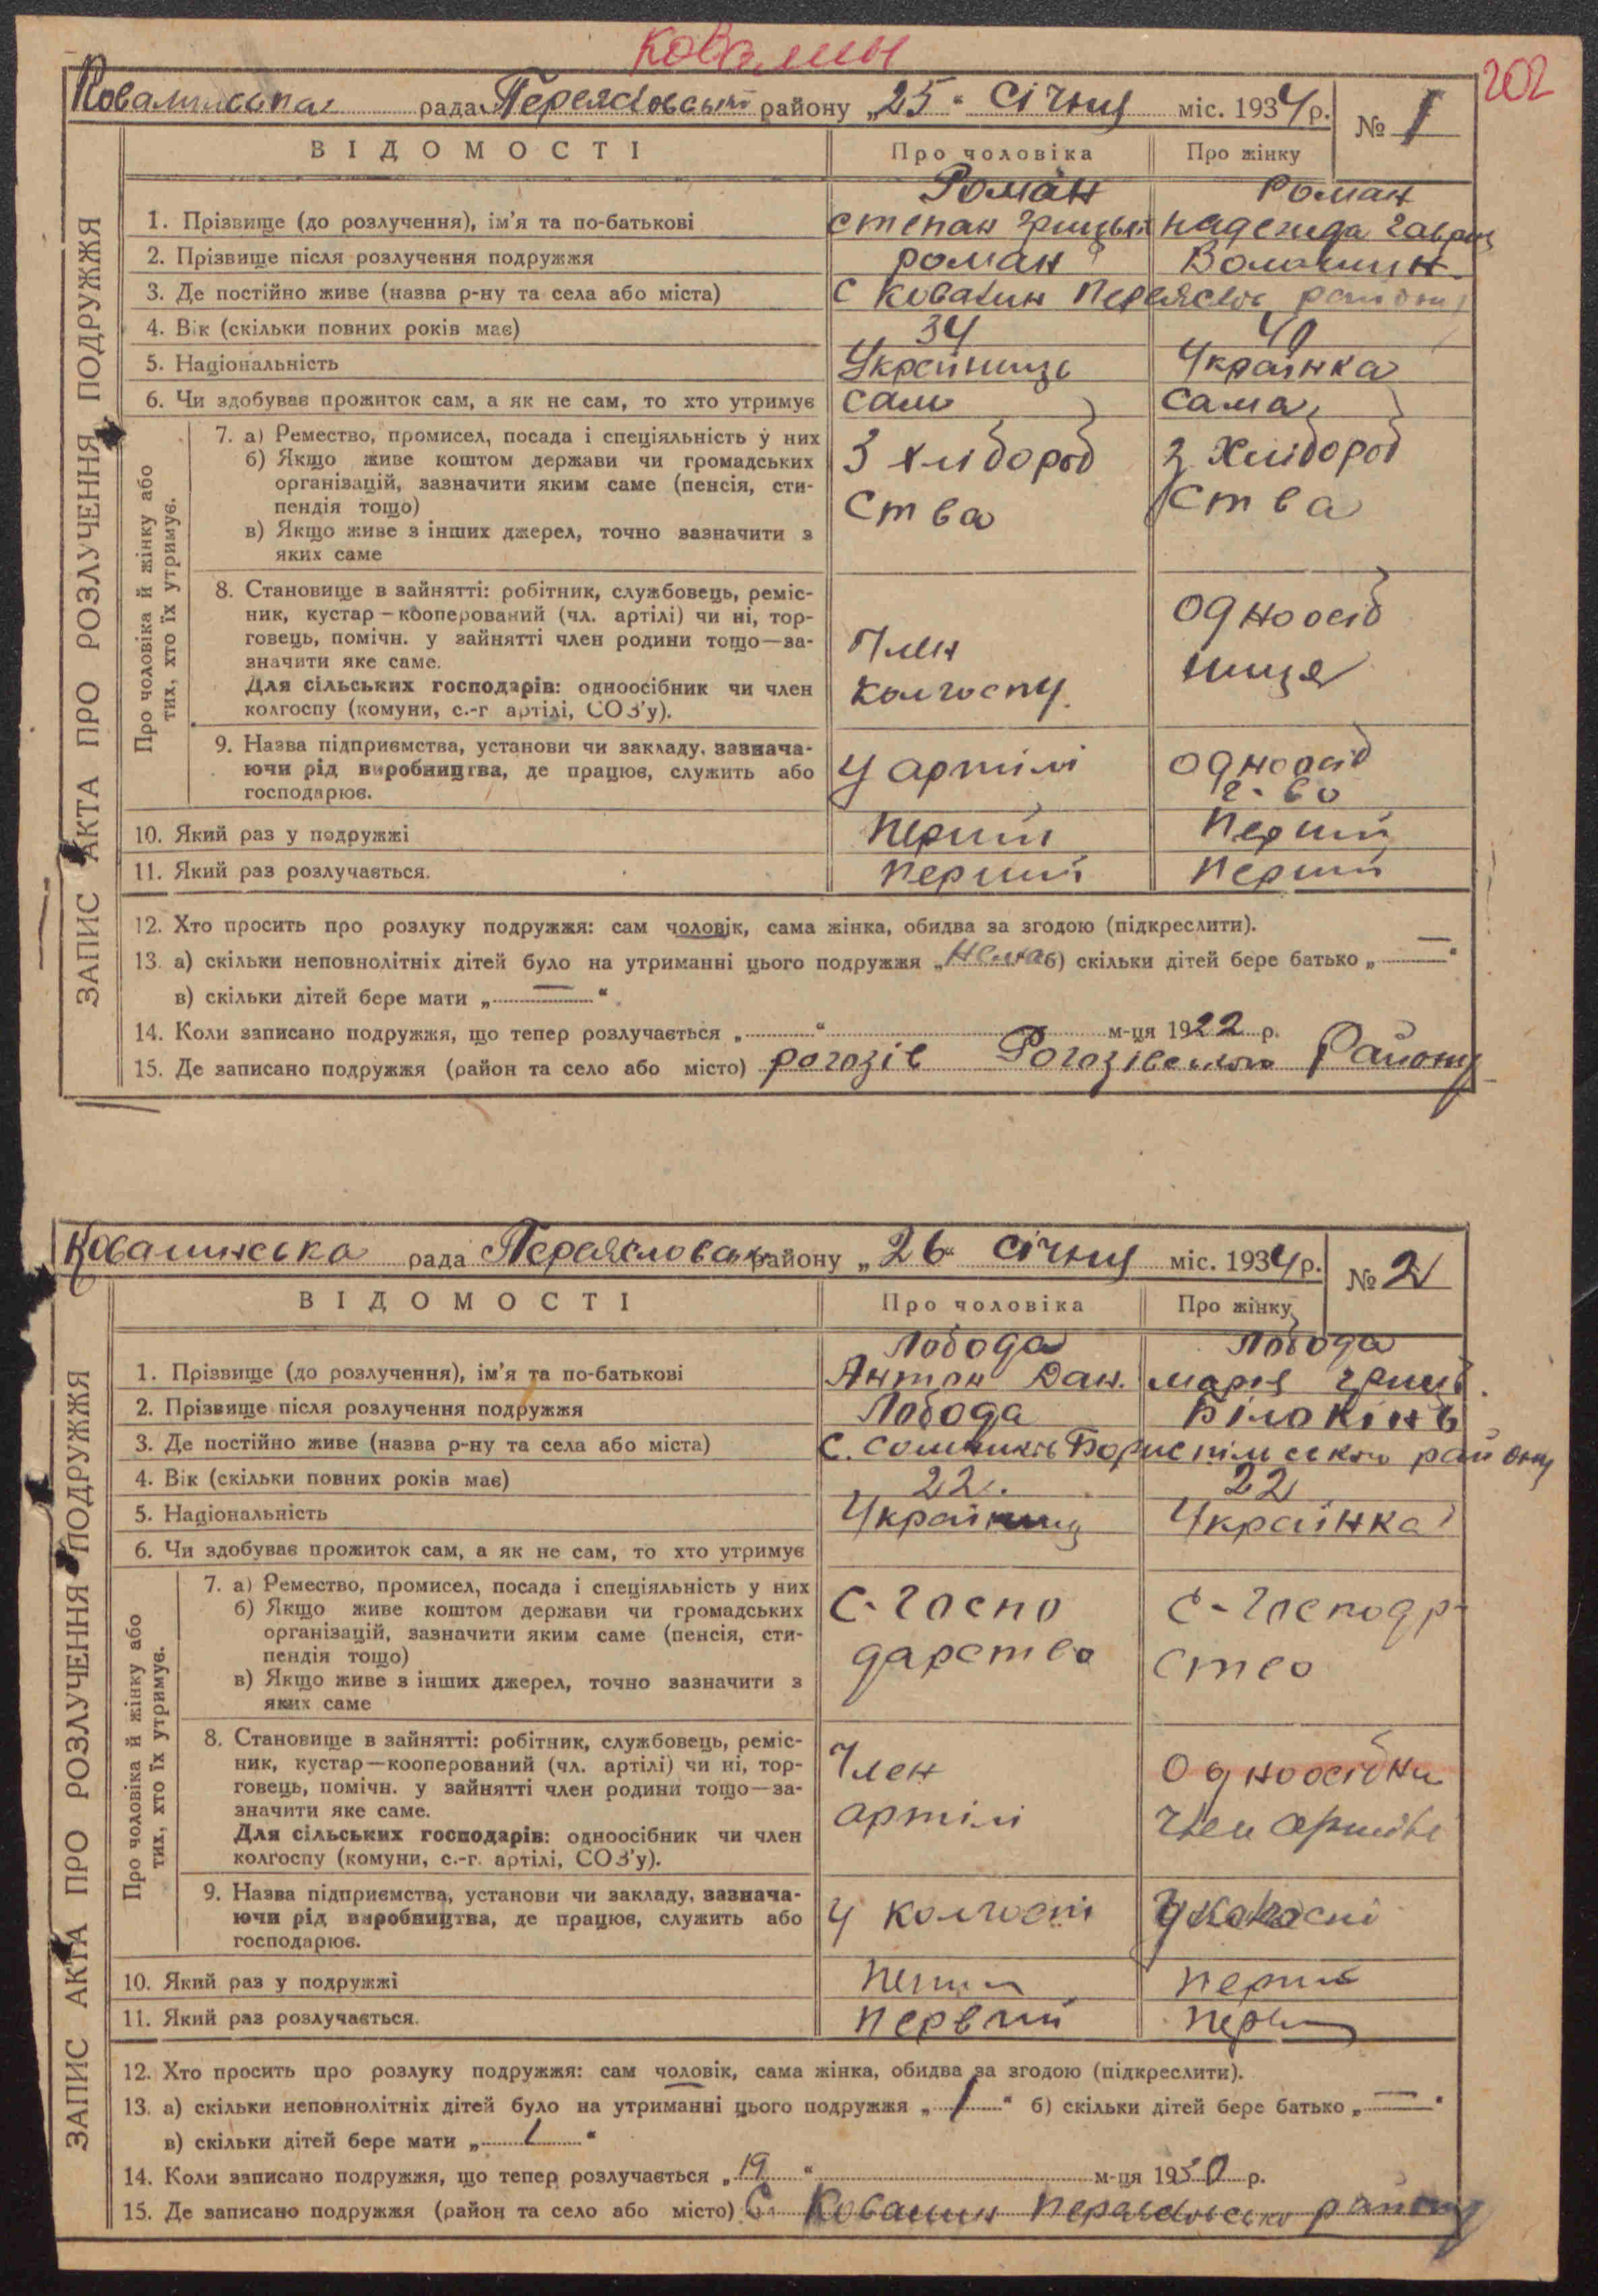 Ковалины
202
Ковалинська рада Переяславськ району „25“ січня міс. 1934 р.
№ 1
ВІДОМОСТІ Про чоловіка Про жінку
Роман Роман
1. Прізвище (до розлучення), ім'я та по-батькові Степан Грицьк Надежда Гавр
2. Прізвище після розлучення подружжя Роман Волошин
3. Де постійно живе (назва р-ну та села або міста) С Ковалин Переяслов району
4. Вік (скільки повних років має) 34 40
5. Національність Українець Українка
6. Чи здобував прожиток сам, а як не сам, то хто утримує сам сама
Про чоловіка й жінку або тих, хто їх утримує.
7. а) Ремество, промисел, посада і спеціяльність у них
б) Якщо живе коштом держави чи громадських
організацій, зазначити яким саме (пенсія, сти-
пендія тощо)
в) Якщо живе з інших джерел, точно зазначити з
яких саме
З хлібороб
ства
з хлібороб
ства
8. Становище в зайнятті: робітник, службовець, реміс-
ник, кустар—кооперований (чл. артілі) чи ні, тор-
говець, помічн. у зайнятті член родини тощо—за-
значити яке саме.
Для сільських господарів: одноосібник чи член
колгоспу (комуни, с.-г артілі, СОЗ'у).
Член
колгоспу.
Одноосіб
ниця
9. Назва підприємства, установи чи закладу, зазнача-
ючи рід виробництва, де працює, служить або
господарює.
У артілі
одноосіб
г-во
10. Який раз у подружжі Перший Перший
11. Який раз розлучається. Перший Перший
12. Хто просить про розлуку подружжя: сам чоловік, сама жінка, обидва за згодою (підкреслити).
13. а) скільки неповнолітніх дітей було на утриманні цього подружжя „Нема б) скільки дітей бере батько „—“
в) скільки дітей бере мати „—“
14. Коли записано подружжя, що тепер розлучається „ “ м-ця 1922 р.
15. Де записано подружжя (район та село або місто) рогозів Рогозівського Району
ЗАПИС АКТА ПРО РОЗЛУЧЕННЯ ПОДРУЖЖЯ
Ковалинська рада Переясловськ району „26“ січня міс. 1934 р.
№ 2
ВІДОМОСТІ Про чоловіка Про жінку
Лобода Лобода
1. Прізвище (до розлучення), ім'я та по-батькові Антон Дан. Марія Гриц.
2. Прізвище після розлучення подружжя Лобода Білокінь
3. Де постійно живе (назва р-ну та села або міста) С. Бориспільсько району
4. Вік (скільки повних років має) 22. 22
5. Національність Українец Українка
6. Чи здобував прожиток сам, а як не сам, то хто утримує
Про чоловіка й жінку або тих, хто їх утримує.
7. а) Ремество, промисел, посада і спеціяльність у них
б) Якщо живе коштом держави чи громадських
організацій, зазначити яким саме (пенсія, сти-
пендія тощо)
в) Якщо живе з інших джерел, точно зазначити з
яких саме
С-госпо
дарство
С-господр-
ство
8. Становище в зайнятті: робітник, службовець, реміс-
ник, кустар—кооперований (чл. артілі) чи ні, тор-
говець, помічн. у зайнятті член родини тощо—за-
значити яке саме.
Для сільських господарів: одноосібник чи член
колгоспу (комуни, с.-г. артілі, СОЗ'у).
Член
артілі
Одноосібни
член артілі
9. Назва підприємства, установи чи закладу, зазнача-
ючи рід виробництва, де працює, служить або
господарює.
У колгоспі
У колгоспі
10. Який раз у подружжі Перший
11. Який раз розлучається. Первий
12. Хто просить про розлуку подружжя: сам чоловік, сама жінка, обидва за згодою (підкреслити).
13. а) скільки неповнолітніх дітей було на утриманні цього подружжя „1“ б) скільки дітей бере батько „—“
в) скільки дітей бере мати „1“
14. Коли записано подружжя, що тепер розлучається „19“ м-ця 1930 р.
15. Де записано подружжя (район та село або місто) С Ковалин Переяслосько району
ЗАПИС АКТА ПРО РОЗЛУЧЕННЯ ПОДРУЖЖЯ